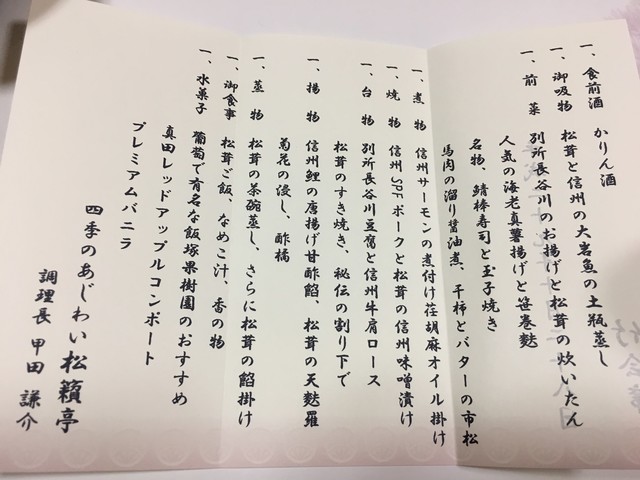 一、食前酒　かりん酒
一、御吸物　松茸と信州の大岩魚の土瓶蒸し
一、前　菜　別所長谷川のお揚げと松茸の炊いたん
人気の海老真薯揚げと笹巻麩
名物、鯖棒寿司と玉子焼き
馬肉の溜り醤油煮、干柿とバターの市松
一、煮　物　信州サーモンの煮付け荏胡麻オイル掛け
一、焼　物　信州SPFポークと松茸の信州味噌漬け
一、台　物　別所長谷川豆腐と信州牛肩ロース
松茸のすき焼き、秘伝の割り下で
一、揚　物　信州鯉の唐揚げ甘酢餡、松茸の天麩羅
菊花の浸し、酢橘
一、蒸　物　松茸の茶碗蒸し、さらに松茸の餡掛け
一、御食事　松茸ご飯、なめこ汁、香の物
一、水菓子　葡萄で有名な飯塚果樹園のおすすめ
真田レッドアップルコンポート
プレミアムバニラ
四季のあじわい松籟亭
調理長　甲田　謙介